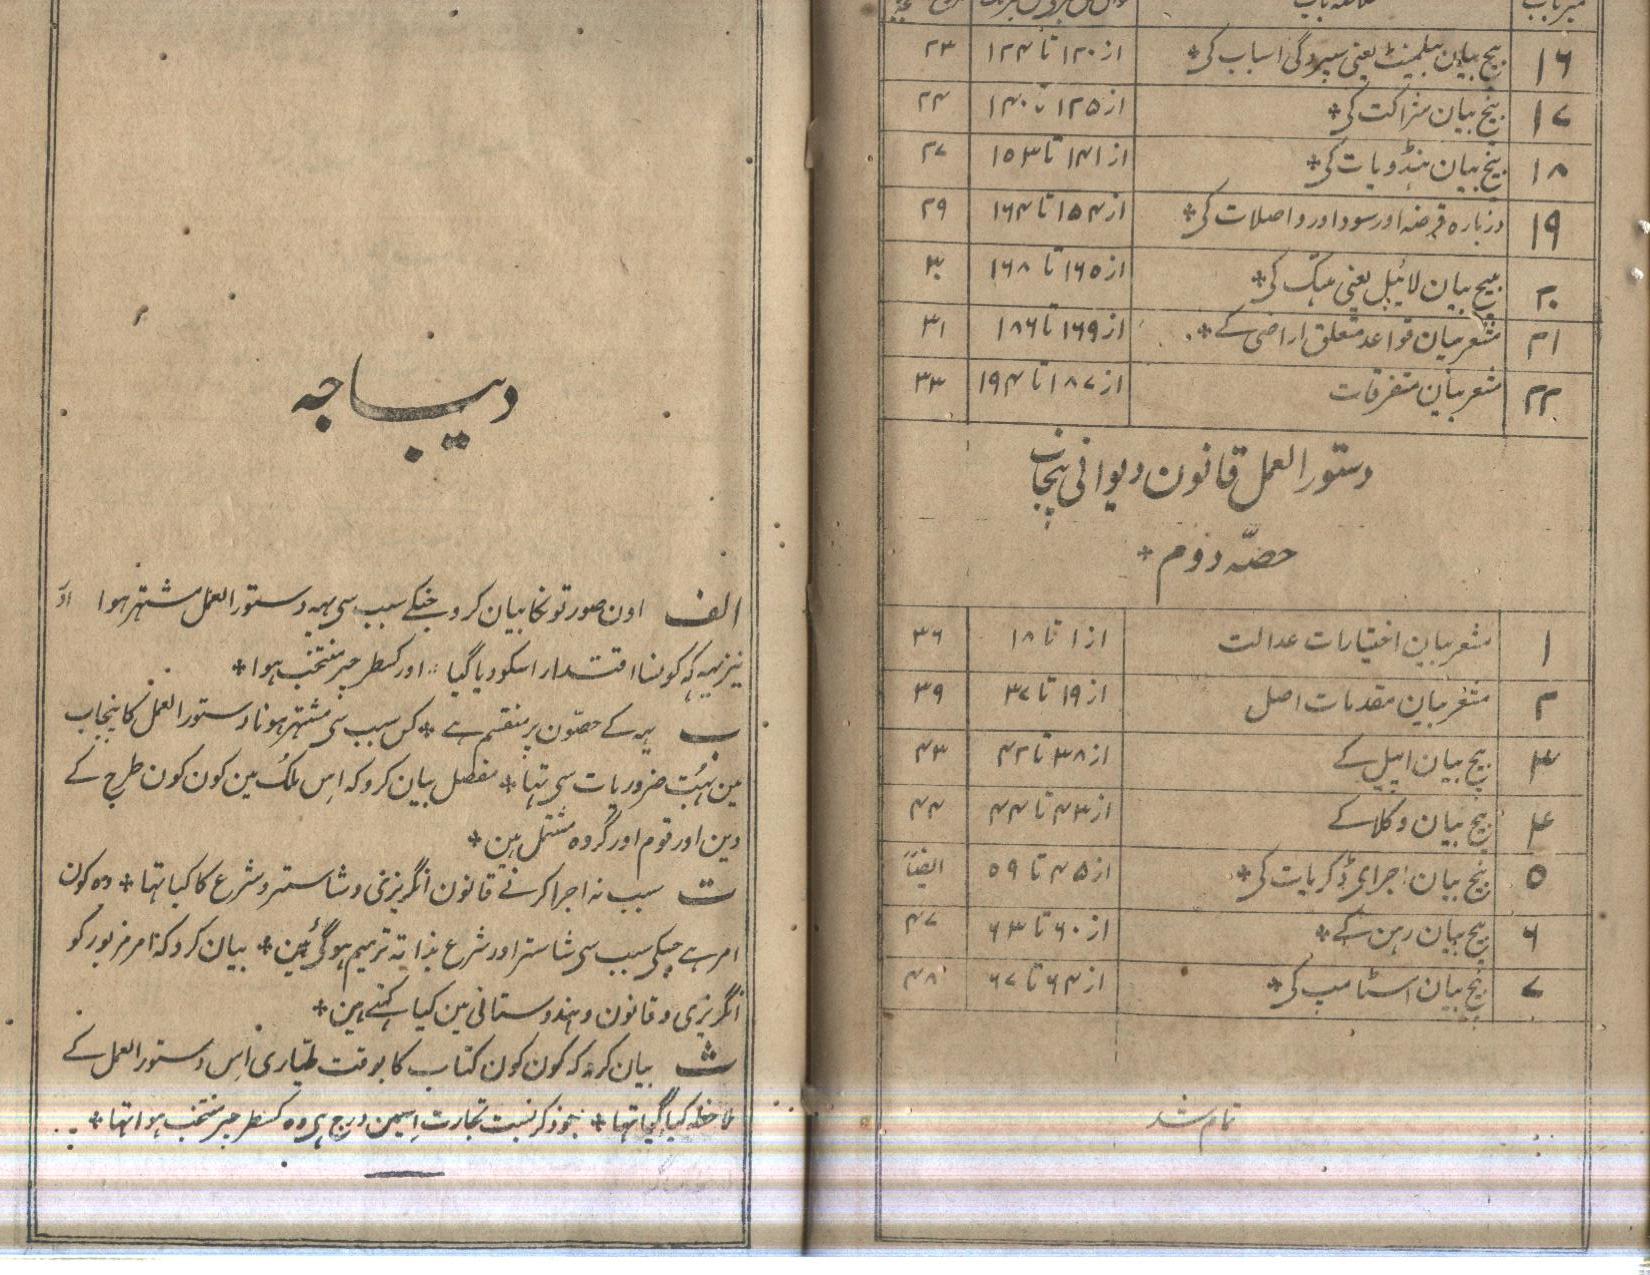 ۱۶ بیچ بیان بیلمینٹ یعنی سپردگی اسباب کی* از ۱۲۰ تا ۱۲۴ ۲۳
۱۷ بیچ بیان شراکت کی* از ۱۲۵ تا ۱۴۰ ۲۴
۱۸ بیچ بیان ہنڈویات کی* از ۱۴۱ تا ۱۵۳ ۲۷
۱۹ دربارہ قرضہ اور سود اور واصلات کی* از ۱۵۴ تا ۱۶۴ ۲۹
۲۰ بیچ بیان لائبل یعنی ہتک کی* از ۱۶۵ تا ۱۶۸ ۳۰
۲۱ مشعر بیان قواعد متعلق اراضی کے* از ۱۶۹ تا ۱۸۶ ۳۱
۲۲ مشعر بیان متفرقات از ۱۸۷ تا ۱۹۴ ۳۳
دستور العمل قانون دیوانی پنجاب
حصّہ دوم*
۱ مشعر بیان اختیارات عدالت از ۱ تا ۱۸ ۳۶
۲ مشعر بیان مقدمات اصل از ۱۹ تا ۳۷ ۳۹
۳ بیچ بیان اپیل کے از ۳۸ تا ۴۲ ۴۳
۴ بیچ بیان وکلا کے از ۴۳ تا ۴۴ ۴۴
۵ بیچ بیان اجرای ڈگریات کی* از ۴۵ تا ۵۹ ایضاً
۶ بیچ بیان رہن کے* از ۶۰ تا ۶۳ ۴۷
۷ بیچ بیان اسٹامپ کی* از ۶۴ تا ۶۷ ۴۸
تمام شد
دیباجہ
الف اون صورتونکا بیان کرو جنکے سبب سی یہہ دستور العمل مشتہر ہوا اور
نیز یہہ کہ کونسا اقتدار اسکو دیا گیا :: اور کسطرحپر منتخب ہوا*
ب یہہ کے حصّون پر منقسم ہے* کس سبب سی مشتہر ہونا دستور العمل کا پنجاب
مین نہُت ضروریات سی تہا* مفصل بیان کرو کہ اِس ملک مین کون کون طرح کے
دین اور قوم اور گروہ مشتمل ہین*
ت سبب نہ اجرا کرنے قانون انگریزی و شاستر و شرع کا کیا تہا* وہ کون
امر ہے جسکی سبب سی شاستر اور شرع بذاتہ ترمیم ہو گئے ہین* بیان کرو کہ امر مزبور کو
انگریزی و قانون و ہندوستانی مین کیا کہتے ہین*
ث بیان کرو کہ کون کون کتاب کا بوقت طیّاری اِس دستور العمل کے
ملاحظہ کیا گیا تہا* جو ذکر نسبت تجارت اِسمین درج ہی وہ کسطرحپر منتخب ہوا تہا*